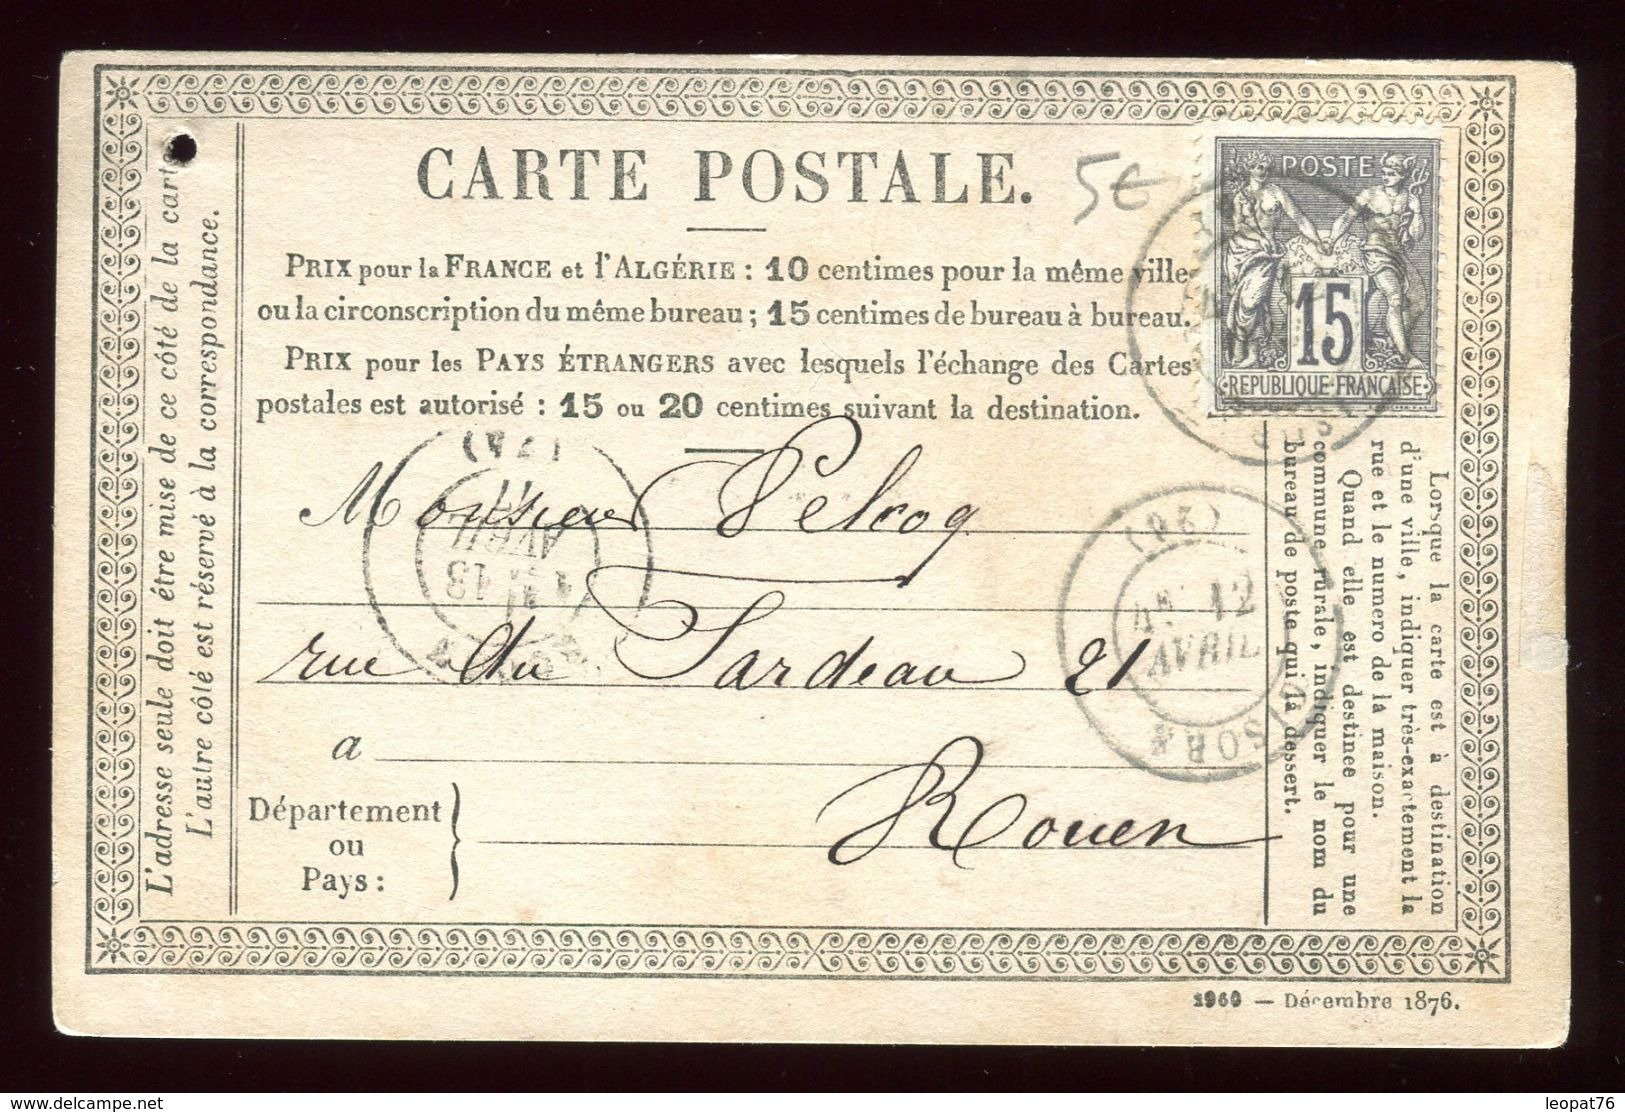 CARTE POSTALE.
5€
POSTE
15
REPUBLIQUE FRANÇAISE
PRIX pour la FRANCE et l'ALGÉRIE : 10 centimes pour la même ville
ou la circonscription du même bureau ; 15 centimes de bureau à bureau.
PRIX pour les PAYS ÉTRANGERS avec lesquels l'échange des Cartes
postales est autorisé : 15 ou 20 centimes suivant la destination.
Monsieur
rue du Sardeau 21
a Rouen
Département
ou
Pays :
L'adresse seule doit être mise de ce côté de la carte
L'autre côté est réservé à la correspondance.
Lorsque la carte est à destination
d'une ville, indiquer très-exactement la
rue et le numero de la maison.
Quand elle est destinée pour une
commune rurale, indiquer le nom du
bureau de poste qui la dessert.
12
AVRIL
GISORS
13
AVRIL
77
1960 — Décembre 1876.
delcampe.net
leopat76